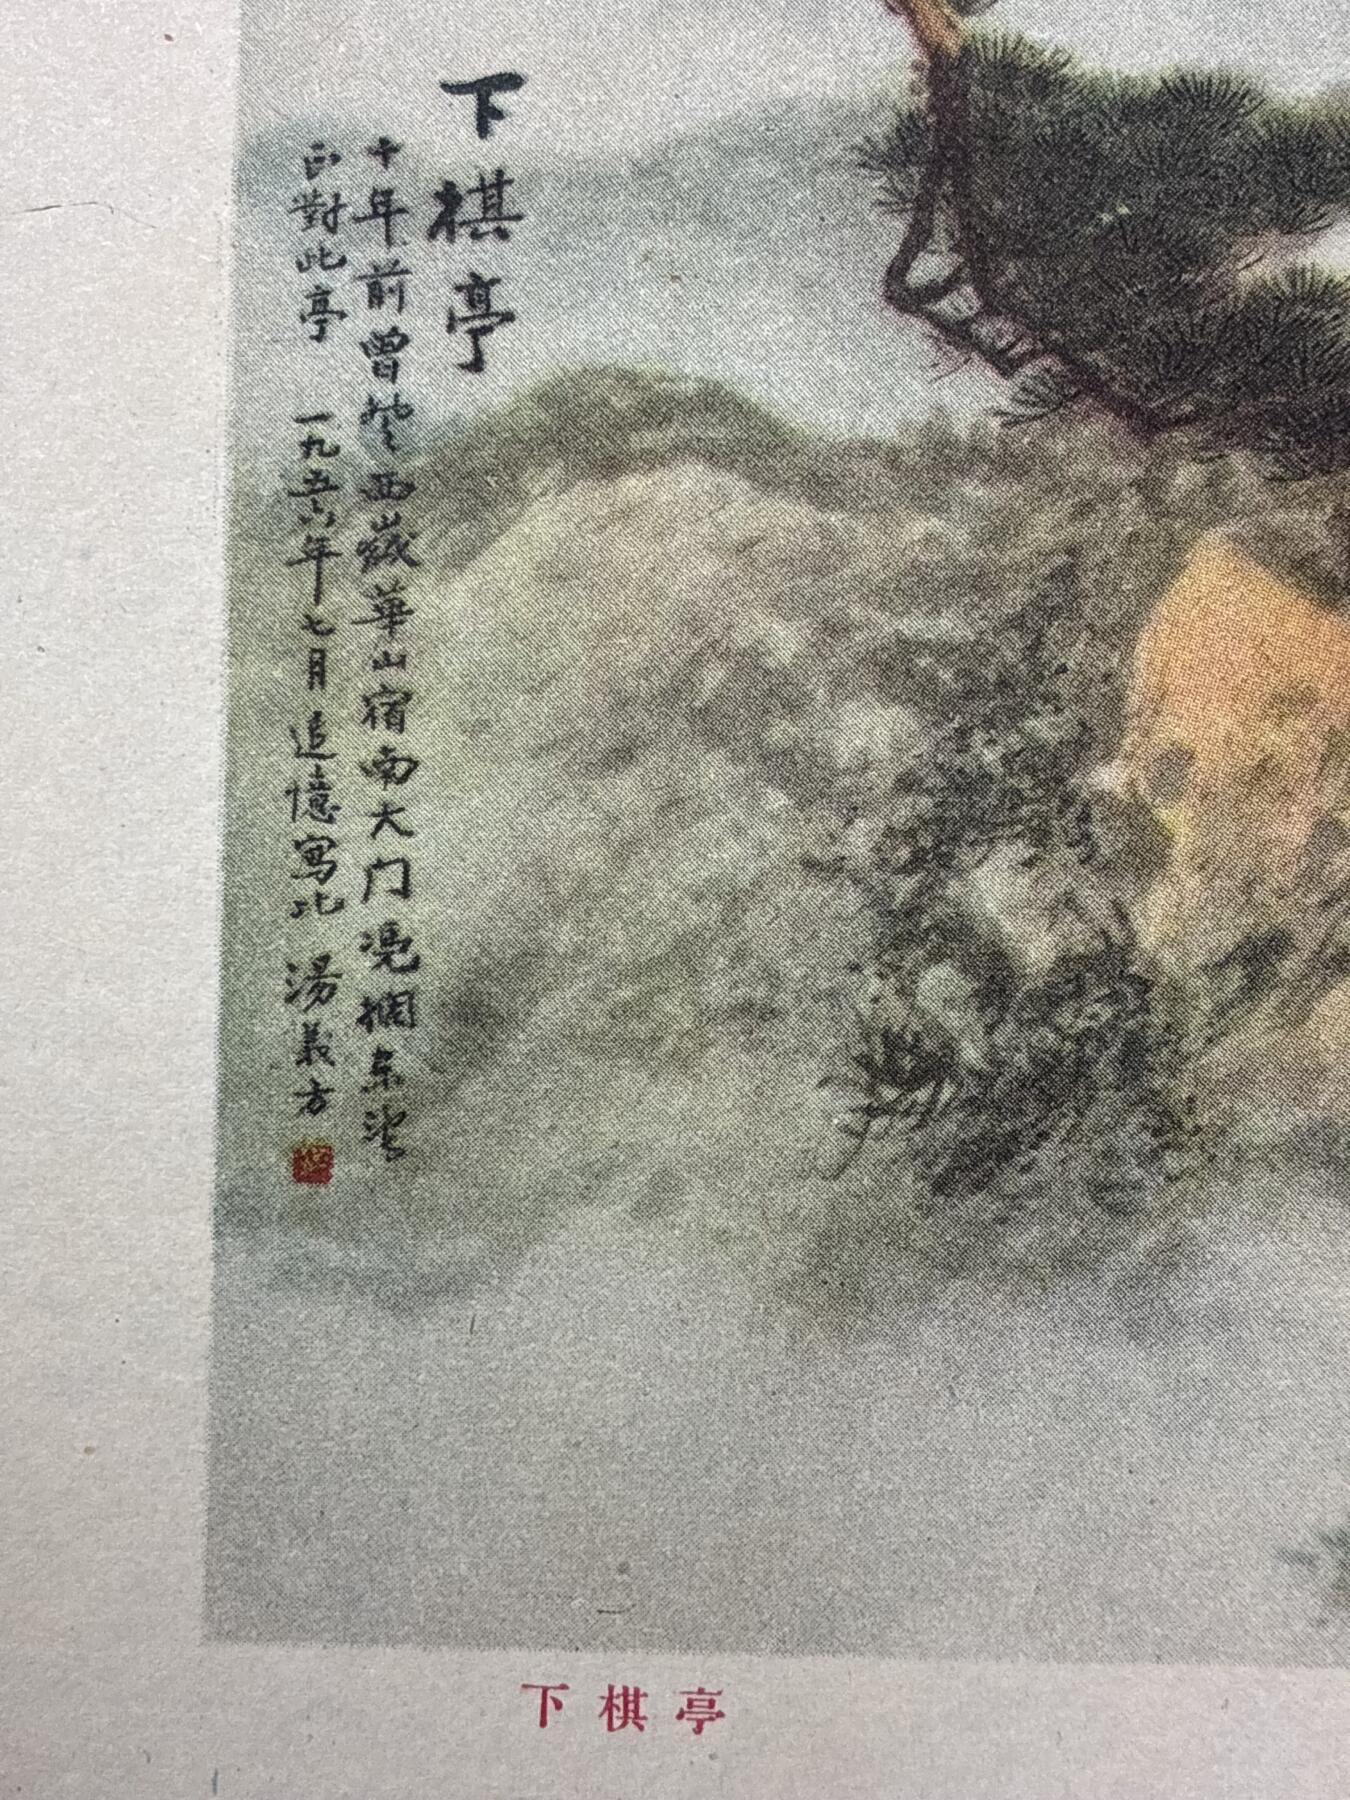 下棋亭
十年前曾登西嶽華山宿南大门凭栏东望
正對此亭 一九五六年七月 追憶寫此 湯義方
下棋亭